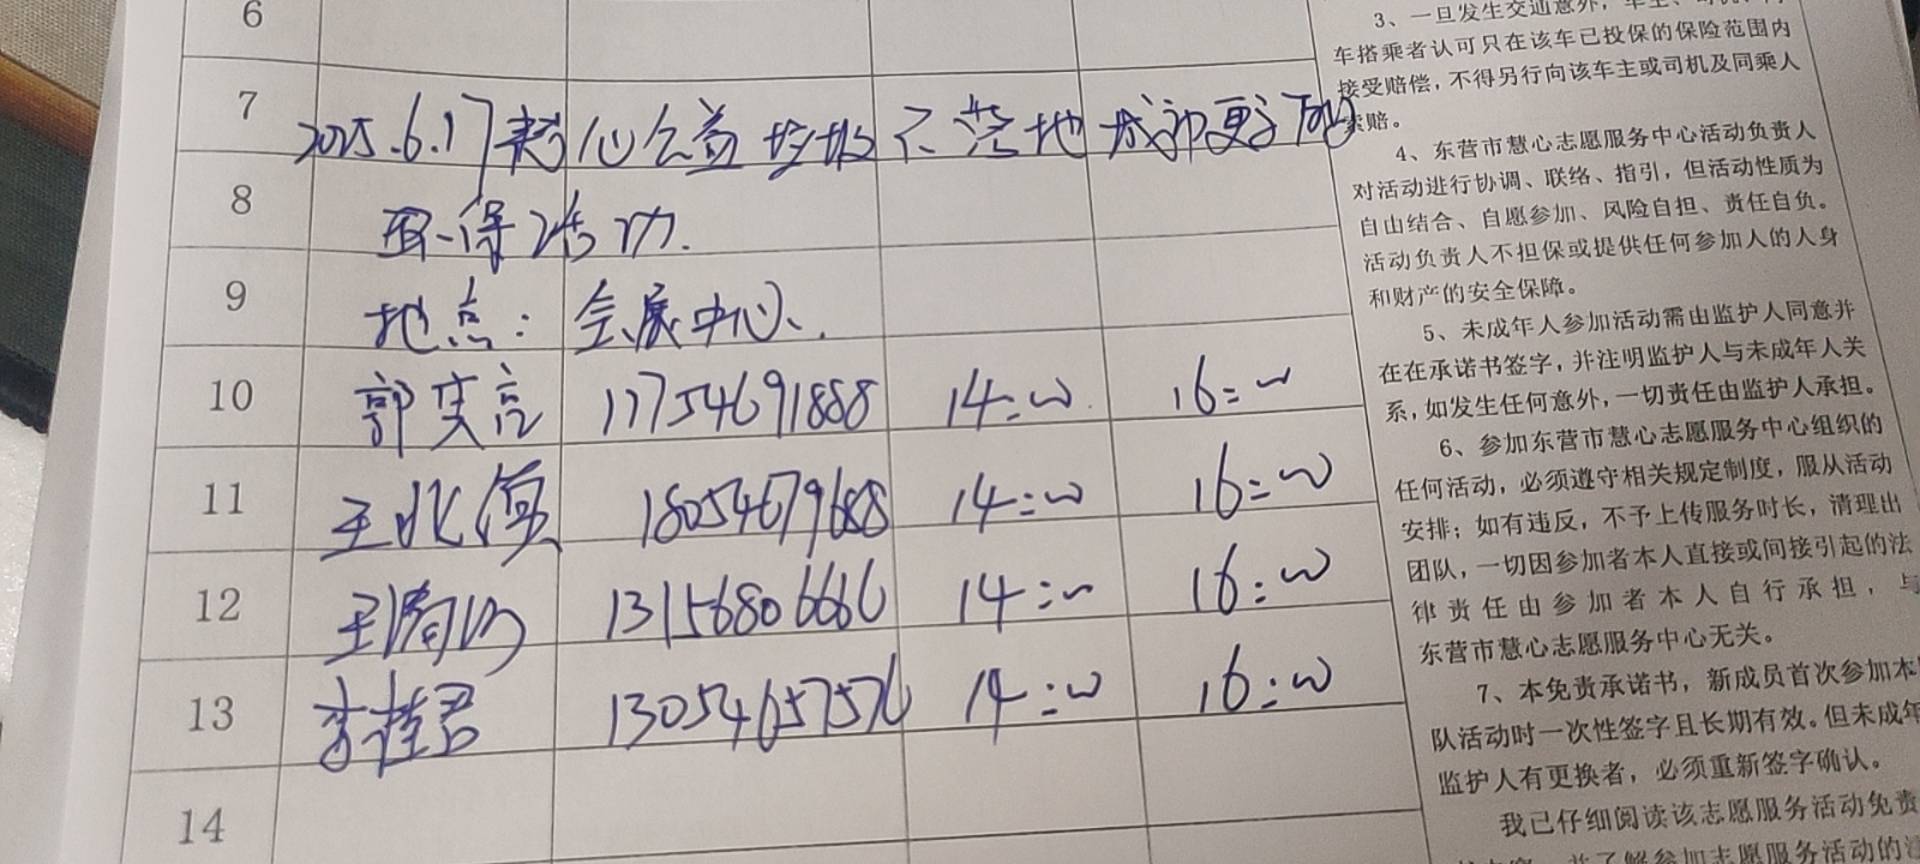 6
7 2025.6.17 慧心公益垃圾不落地城市更美丽
8 环保活动.
9 地点: 会展中心.
10 郭奕亮 17754691888 14:00 16:00
11 王北海 18054679688 14:00 16:00
12 王 13156806666 14:00 16:00
13 李桂君 13054657576 14:00 16:00
14
3、一旦发生交通意外，车主、司机、同
车搭乘者认可只在该车已投保的保险范围内
接受赔偿，不得另行向该车主或司机及同乘人
索赔。
4、东营市慧心志愿服务中心活动负责人
对活动进行协调、联络、指引，但活动性质为
自由结合、自愿参加、风险自担、责任自负。
活动负责人不担保或提供任何参加人的人身
和财产的安全保障。
5、未成年人参加活动需由监护人同意并
在在承诺书签字，并注明监护人与未成年人关
系，如发生任何意外，一切责任由监护人承担。
6、参加东营市慧心志愿服务中心组织的
任何活动，必须遵守相关规定制度，服从活动
安排；如有违反，不予上传服务时长，清理出
团队，一切因参加者本人直接或间接引起的法
律责任由参加者本人自行承担，与
东营市慧心志愿服务中心无关。
7、本免责承诺书，新成员首次参加本
队活动时一次性签字且长期有效。但未成年
监护人有更换者，必须重新签字确认。
我已仔细阅读该志愿服务活动免责
并了解参加志愿服务活动的